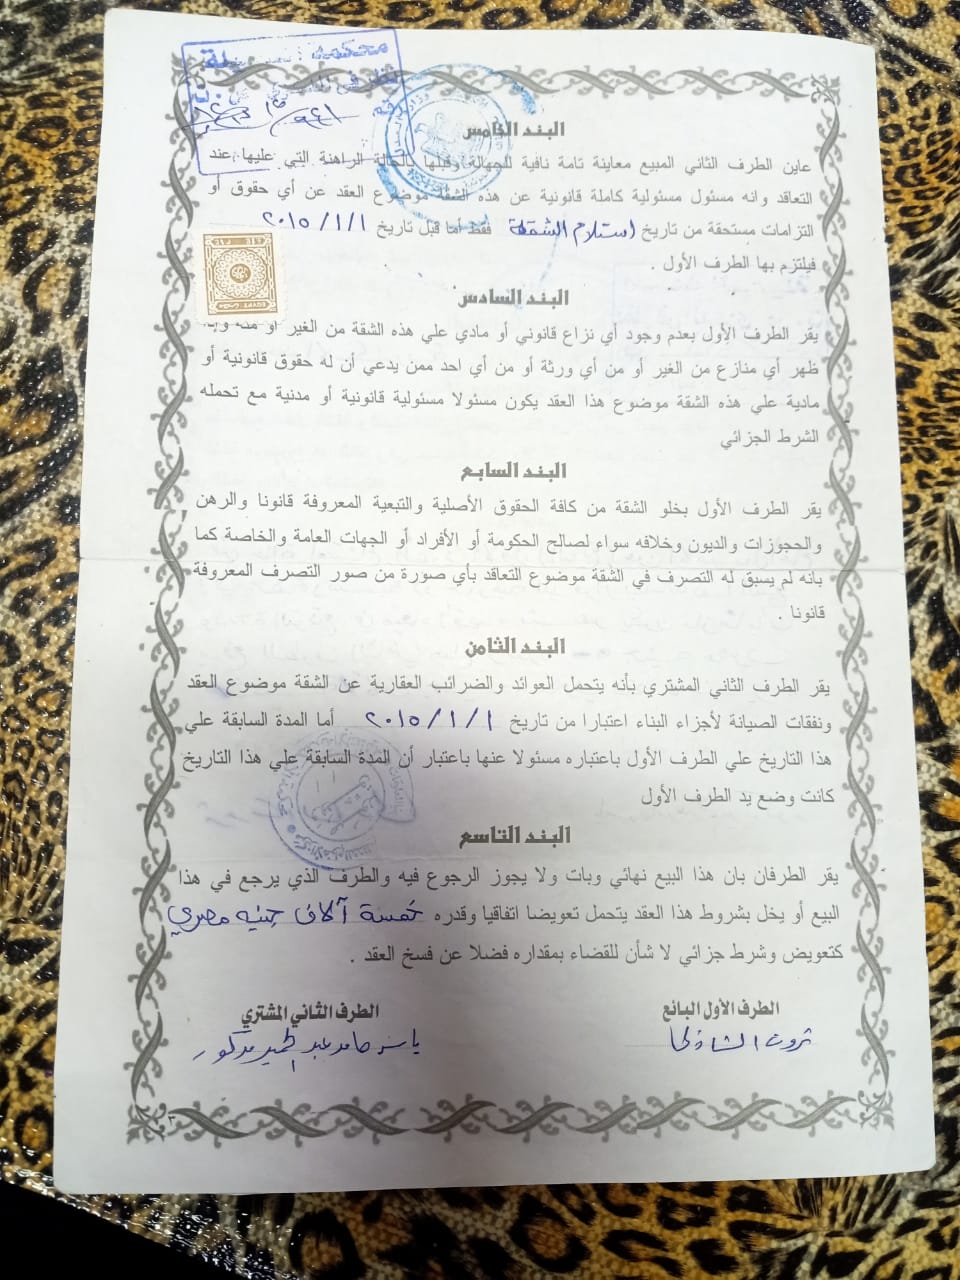 محكمة
البند الخامس
عاين الطرف الثاني المبيع معاينة تامة نافية للجهالة وقبلها بالحالة الراهنة التي عليها عند
التعاقد وانه مسئول مسئولية كاملة قانونية عن هذه الشقة موضوع العقد عن أي حقوق أو
التزامات مستحقة من تاريخ استلام الشقة فقط أما قبل تاريخ ٢٠١٥/١/١
فيلتزم بها الطرف الأول .
البند السادس
يقر الطرف الأول بعدم وجود أي نزاع قانوني أو مادي علي هذه الشقة من الغير أو منه وإذا
ظهر أي منازع من الغير أو من أي ورثة أو من أي احد ممن يدعي أن له حقوق قانونية أو
مادية علي هذه الشقة موضوع هذا العقد يكون مسئولا مسئولية قانونية أو مدنية مع تحمله
الشرط الجزائي
البند السابع
يقر الطرف الأول بخلو الشقة من كافة الحقوق الأصلية والتبعية المعروفة قانونا والرهن
والحجوزات والديون وخلافه سواء لصالح الحكومة أو الأفراد أو الجهات العامة والخاصة كما
بانه لم يسبق له التصرف في الشقة موضوع التعاقد بأي صورة من صور التصرف المعروفة
قانونا .
البند الثامن
يقر الطرف الثاني المشتري بأنه يتحمل العوائد والضرائب العقارية عن الشقة موضوع العقد
ونفقات الصيانة لأجزاء البناء اعتبارا من تاريخ ٢٠١٥/١/١ أما المدة السابقة علي
هذا التاريخ علي الطرف الأول باعتباره مسئولا عنها باعتبار أن المدة السابقة علي هذا التاريخ
كانت وضع يد الطرف الأول
البند التاسع
يقر الطرفان بان هذا البيع نهائي وبات ولا يجوز الرجوع فيه والطرف الذي يرجع في هذا
البيع أو يخل بشروط هذا العقد يتحمل تعويضا اتفاقيا وقدره خمسة آلاف جنيه مصري
كتعويض وشرط جزائي لا شأن للقضاء بمقداره فضلا عن فسخ العقد .
الطرف الأول البائع
الطرف الثاني المشتري
ثروت الشاذلي
ياسر حامد عبد الحميد مدكور
٣